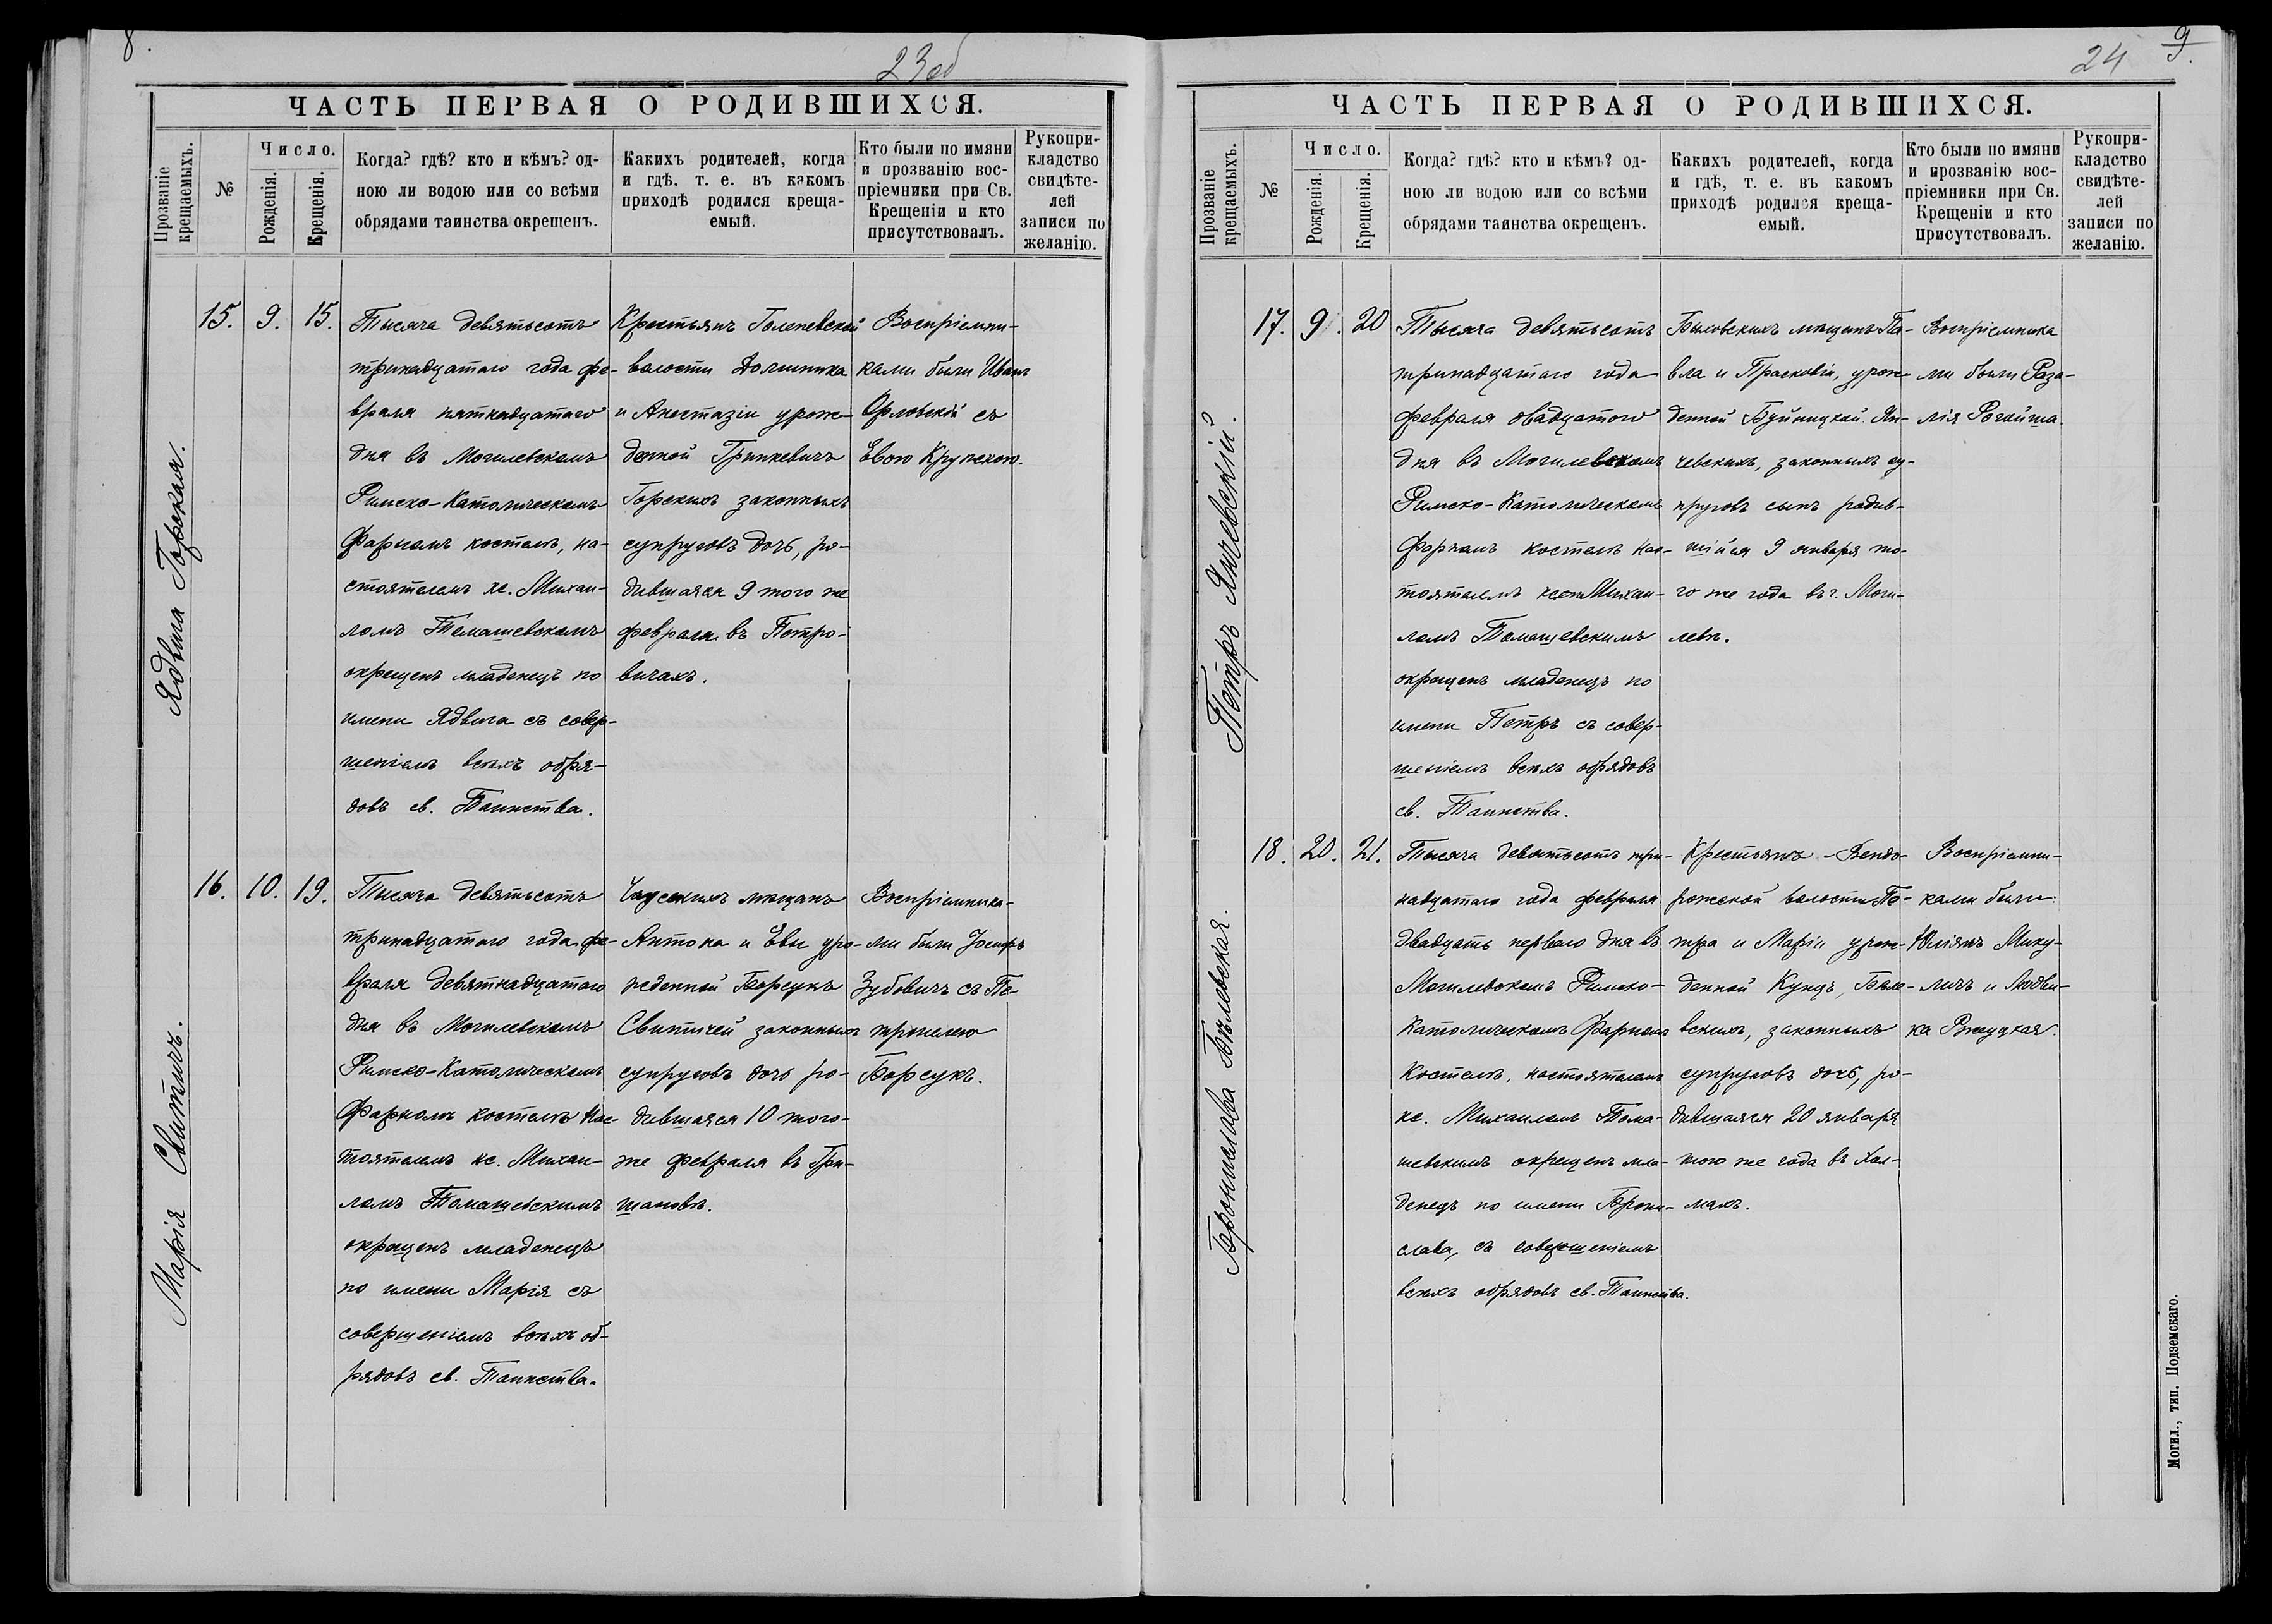 8.
23об
ЧАСТЬ ПЕРВАЯ О РОДИВШИХСЯ.
Прозваніе крещаемыхъ.
№
Число.
Рожденія.
Крещенія.
Когда? гдѣ? кто и кѣмъ? од-
ною ли водою или со всѣми
обрядами таинства окрещенъ.
Какихъ родителей, когда
и гдѣ. т. е. въ какомъ
приходѣ родился креща-
емый.
Кто были по имяни
и прозванію вос-
пріемники при Св.
Крещеніи и кто
присутствовалъ.
Рукопри-
кладство
свидѣте-
лей
записи по
желанію.
Ядвига Горская.
15. 9. 15.
Тысяча девятьсотъ
тринадцатаго года фе-
враля пятнадцатаго
дня въ Могилевскомъ
Римско-Католическомъ
Фарномъ костелѣ, на-
стоятелемъ кс. Михаи-
ломъ Томашевскомъ
окрещенъ младенецъ по
имени Ядвига съ совер-
шеніемъ всѣхъ обря-
довъ св. Таинства.
Крестьянъ
волости Доминика
и Анастазіи урож-
денной Гринкевичъ
Горскихъ законныхъ
супруговъ дочь, ро-
дившаяся 9 того же
февраля въ Петро-
вичахъ.
Воспріемни-
ками были Иванъ
Орловскій съ
Евою Крупскою.
Марія Свитичъ.
16. 10. 19.
Тысяча девятьсотъ
тринадцатаго года фе-
враля девятнадцатаго
дня въ Могилевскомъ
Римско-Католическомъ
Фарномъ костелѣ нас-
тоятелемъ кс. Михаи-
ломъ Томашевскимъ
окрещенъ младенецъ
по имени Марія съ
совершеніемъ всѣхъ об-
рядовъ св. Таинства.
Чаусскихъ мѣщанъ
Антона и Евы уро-
жденной Борсукъ
Свитичей законныхъ
супруговъ дочь ро-
дившаяся 10 того-
же февраля въ Гри-
шановѣ.
Воспріемника-
ми были Іосифъ
Зубовичъ съ Пе-
тронелею
Борсукъ.
24
9.
ЧАСТЬ ПЕРВАЯ О РОДИВШИХСЯ.
Прозваніе крещаемыхъ.
№
Число.
Рожденія.
Крещенія.
Когда? гдѣ? кто и кѣмъ? од-
ною ли водою или со всѣми
обрядами таинства окрещенъ.
Какихъ родителей, когда
и гдѣ, т. е. въ какомъ
приходѣ родился креща-
емый.
Кто были по имяни
и прозванію вос-
пріемники при Св.
Крещеніи и кто
присутствовалъ.
Рукопри-
кладство
свидѣте-
лей
записи по
желанію.
Петръ Янчевскій.
17. 9. 20
Тысяча девятьсотъ
тринадцатаго года
февраля двадцатаго
дня въ Могилевскомъ
Римско-Католическомъ
Фарномъ костелѣ нас-
тоятелемъ Михаи-
ломъ Томашевскимъ
окрещенъ младенецъ по
имени Петръ съ совер-
шеніемъ всѣхъ обрядовъ
св. Таинства.
Быховскихъ мѣщанъ Па-
вла и Прасковіи, урож-
денной Буйницкой Ян-
чевскихъ, законныхъ су-
пруговъ сынъ родив-
шійся 9 января то-
го же года въ г. Моги-
левѣ.
Воспріемника
ми были Роза-
лія
Бронислава Бѣлевская.
18. 20. 21.
Тысяча девятьсотъ три-
надцатаго года февраля
двадцать перваго дня въ
Могилевскомъ Римско-
Католическомъ Фарномъ
Костелѣ, настоятелемъ
кс. Михаиломъ Тома-
шевскимъ окрещенъ мла-
денецъ по имени Брони-
слава, съ совершеніемъ
всѣхъ обрядовъ св. Таинства.
Крестьянъ Вендо-
рожской волости Пе-
тра и Маріи урож-
денной Кундъ, Бѣле-
вскихъ, законныхъ
супруговъ дочь, ро-
дившаяся 20 января
того же года въ Хол-
махъ.
Воспріемни-
ками были:
Юліянъ Мику-
личъ и Людви-
ка Ржецкая.
Могил., тип. Подземскаго.